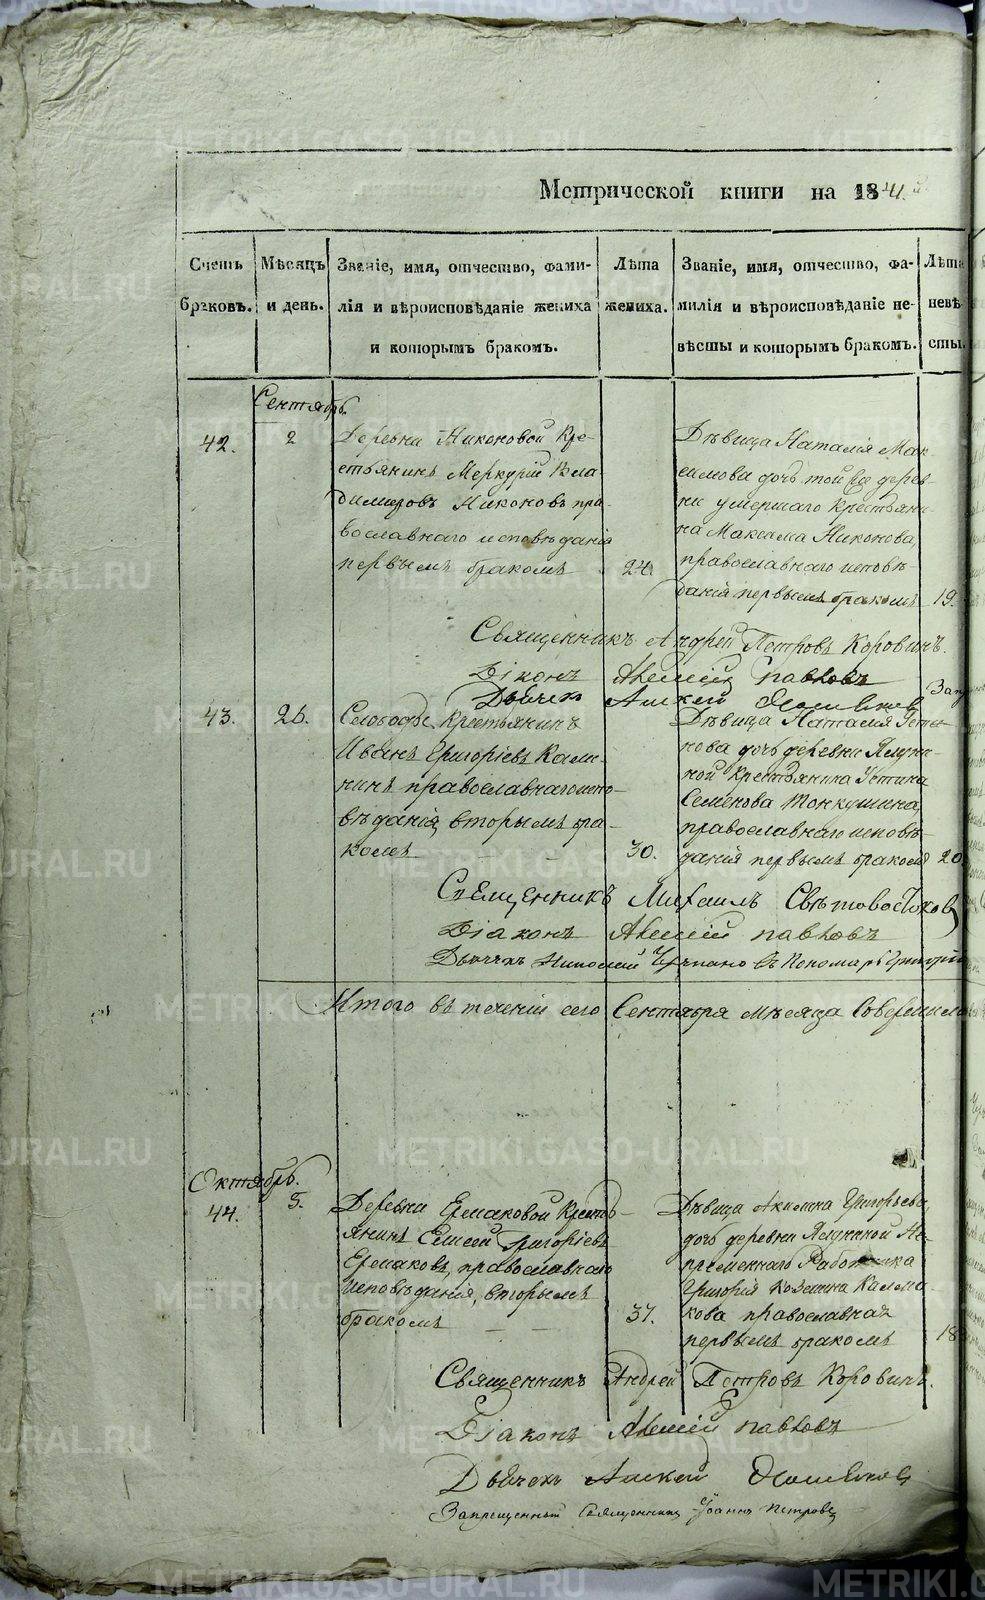 Метрической книги на 1841
Счетъ браковъ.
Мѣсяцъ и день.
Званіе, имя, отчество, фами-
лія и вѣроисповѣданіе жениха
и которымъ бракомъ.
Лѣта жениха.
Званіе, имя, отчество, фа-
милія и вѣроисповѣданіе не-
вѣсты и которымъ бракомъ.
Лѣта невѣ-
сты.
Сентябрь.
42.
2
Деревни Никоновой Кре-
стьянинъ Меркурій Вла-
димировъ Никоновъ пра-
вославнаго исповѣданія
первымъ бракомъ
24.
Дѣвица Наталія Мак-
симова дочь той же дерев-
ни умершаго Крестьяни-
на Максима Никонова,
православнаго исповѣ-
данія первымъ бракомъ
19.
Священникъ Андрей Петровъ Коровинъ.
Діаконъ Алексій Павловъ
Дьячекъ Алексей
43.
26.
Слободы Крестьянинъ
Иванъ Григоріевъ Кали-
нинъ православнаго испо-
вѣданія, вторымъ бра-
комъ
30.
Дѣвица Наталія Усти-
нова дочь деревни Ялуни-
ной Крестьянина Устина
Семенова Тонкушина,
православнаго исповѣ-
данія первымъ бракомъ
20.
Священникъ Михаилъ Свѣтовостоковъ
Діаконъ Алексій Павловъ
Дьячекъ Николай Черпановъ Пономарь Григорій
Итого въ теченіи сего Сентября мѣсяца Совершило
Октябрь.
44.
5.
Деревни Ермаковой Кресть-
янинъ Елисей Григоріевъ
Ермаковъ, православнаго
исповѣданія, вторымъ
бракомъ
37.
Дѣвица Акилина Григорьева,
дочь деревни Ялуниной Не-
премѣннаго Работника
Григорія Козмина Калма-
кова православная
первымъ бракомъ
18
Священникъ Андрей Петровъ Коровинъ.
Діаконъ Алексій Павловъ
Дьячекъ Алексей
Запрещенный Священникъ Іоаннъ Петровъ
METRIKI.GASO-URAL.RU